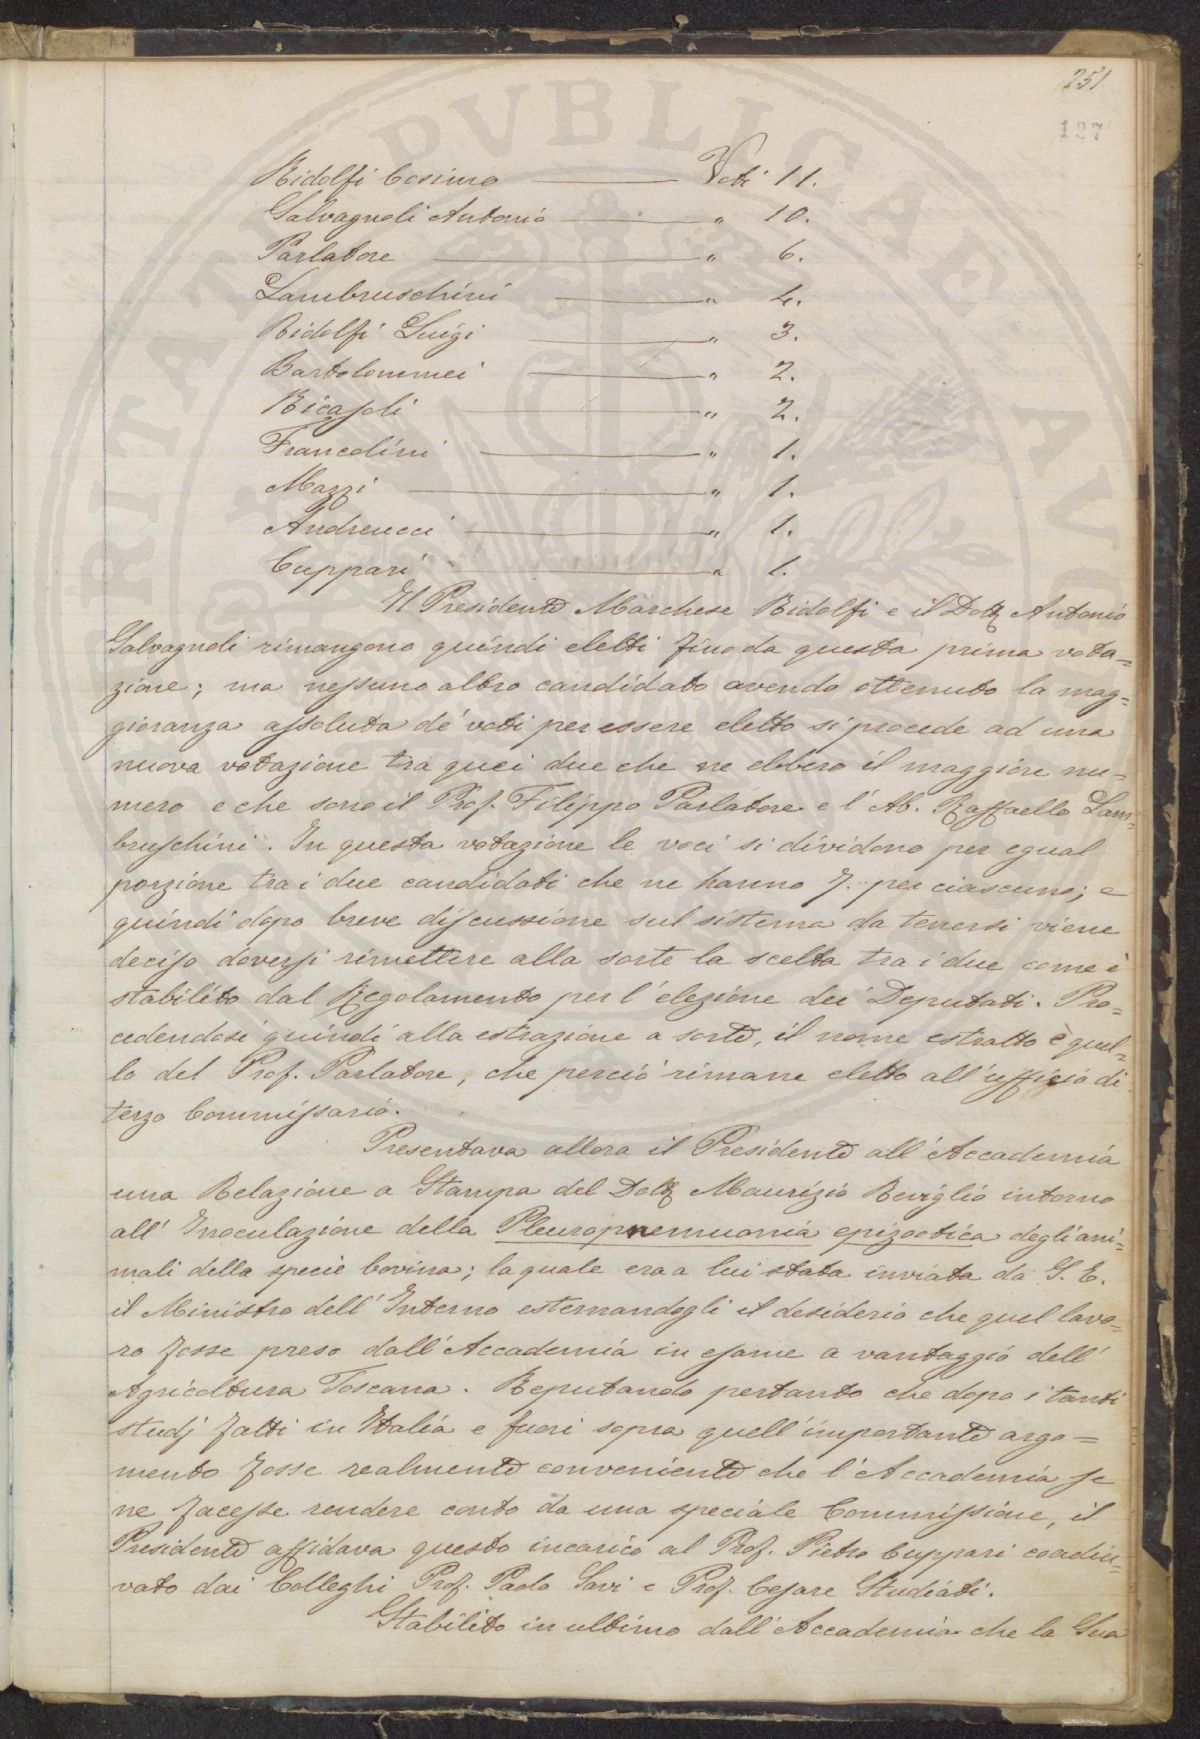 251
127
Ridolfi Cosimo Voti 11.
Salvagnoli Antonio " 10.
Parlatore " 6.
Lambruschini " 4.
Ridolfi Luigi " 3.
Bartolommei " 2.
Ricasoli " 2.
Francolini " 1.
Mazzi " 1.
Andreucci " 1.
Cuppari " 1.
Il Presidente Marchese Ridolfi e il Dott Antonio
Salvagnoli rimangono quindi eletti fino da questa prima vota=
zione; ma nessuno altro candidato avendo ottenuto la mag=
gioranza assoluta de' voti per essere eletto si procede ad una
nuova votazione tra quei due che ne ebbero il maggiore nu=
mero e che sono il Prof. Filippo Parlatore e l'Ab. Raffaello Lam=
bruschini. In questa votazione le voci si dividono per egual
porzione tra i due candidati che ne hanno 7. per ciascuno; e
quindi dopo breve discussione sul sistema da tenersi viene
deciso doversi rimettere alla sorte la scelta tra i due come è
stabilito dal Regolamento per l'elezione dei Deputati. Pro=
cedendosi quindi alla estrazione a sorte, il nome estratto è quel=
lo del Prof. Parlatore, che perciò rimane eletto all'ufficio di
terzo Commissario.
Presentava allora il Presidente all'Accademia
una Relazione a Stampa del Dott Maurizio Reviglio intorno
all'Inoculazione della Pleuropnemuonia epizootica degli ani=
mali della specie bovina; la quale era a lui stata inviata da S. E.
il Ministro dell'Interno esternandogli il desiderio che quel lavo=
ro fosse preso dall'Accademia in esame a vantaggio dell'
Agricoltura Toscana. Reputando pertanto che dopo i tanti
studj fatti in Italia e fuori sopra quell'importante argo=
mento fosse realmente conveniente che l'Accademia se
ne facesse rendere conto da una speciale Commissione, il
Presidente affidava questo incarico al Prof. Pietro Cuppari coadiu=
vato dai Colleghi Prof. Paolo Savi e Prof. Cesare Studiati.
Stabilito in ultimo dall'Accademia che la Sua